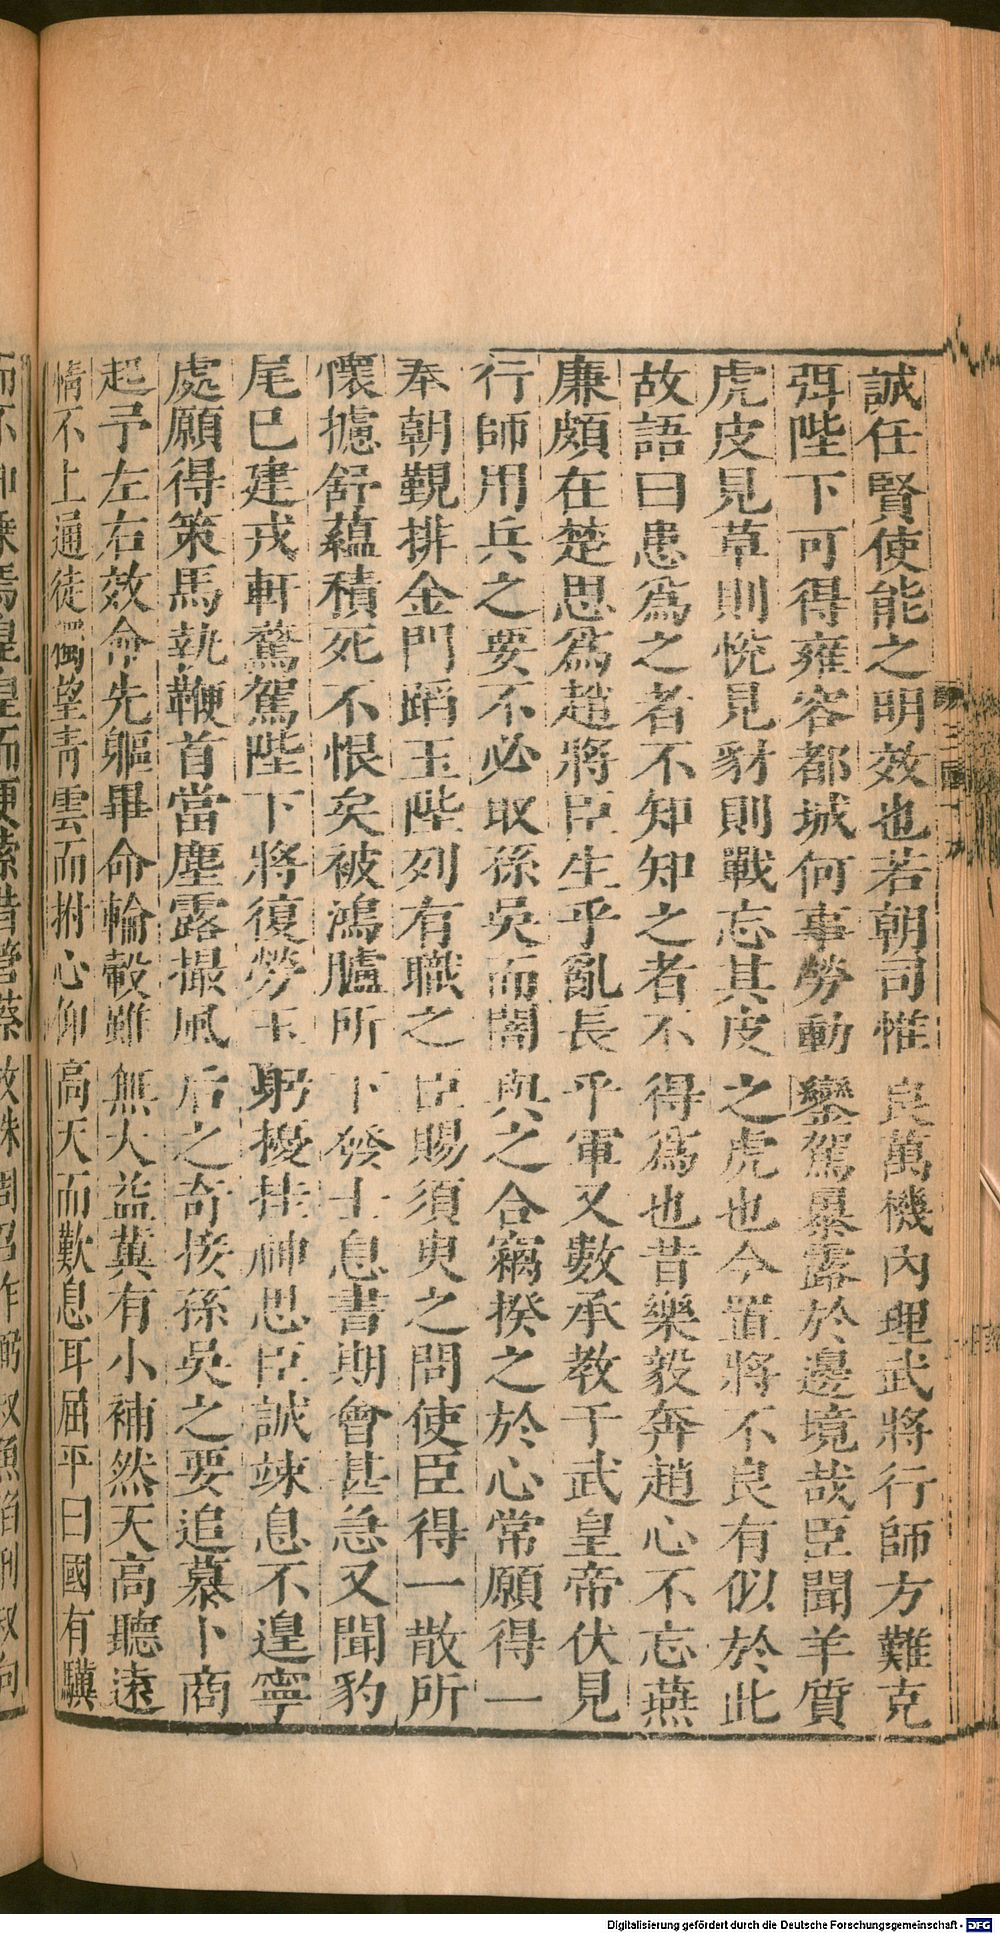 誠任賢使能之明效也若朝司惟良萬機內理武將行師方難克
弭陛下可得雍容都城何事勞動鑾駕暴露於邊境哉臣聞羊質
虎皮見草則恱見豺則戰忘其皮之虎也今置將不良有似於此
故語曰患爲之者不知知之者不得爲也昔樂毅奔趙心不忘燕
廉頗在楚思爲趙將臣生乎亂長乎軍又數承教于武皇帝伏見
行師用兵之要不必取孫吳而闇與之合竊揆之於心常願得一
奉朝覲排金門蹈玉陛列有職之臣賜須臾之問使臣得一散所
懷攄舒蘊積死不恨矣被鴻臚所下發士息書期會甚急又聞豹
尾已建戎軒騖駕陛下將復勞玉躬擾挂神思臣誠竦息不遑寧
處願得策馬執鞭首當塵露撮風后之奇接孫吳之要追慕卜商
起予左右效命先軀畢命輪轂雖無大益冀有小補然天高聽遠
情不上通徒獨望青雲而拊心仰高天而歎息耳屈平曰國有驥